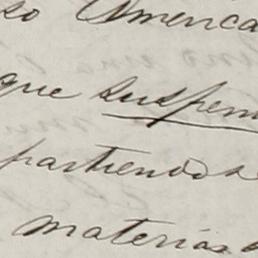 so America
que suspen
partiendose
materias